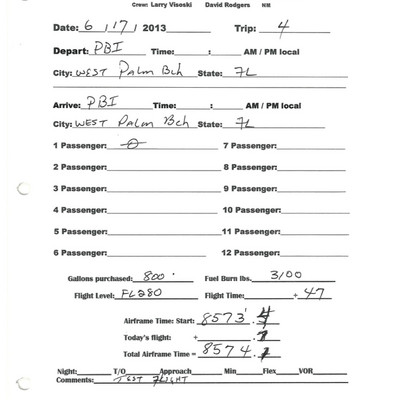 Crew: Larry Visoski David Rodgers NM
Date: 6 / 17 / 2013 Trip: 4
Depart: PBI Time: : AM / PM local
City: WEST Palm Bch State: FL
Arrive: PBI Time: : AM / PM local
City: WEST Palm Bch State: FL
1 Passenger: 0 7 Passenger:
2 Passenger: 8 Passenger:
3 Passenger: 9 Passenger:
4 Passenger: 10 Passenger:
5 Passenger: 11 Passenger:
6 Passenger: 12 Passenger:
Gallons purchased: 800 Fuel Burn lbs. 3100
Flight Level: FL280 Flight Time: + 47
Airframe Time: Start: 8573 .
Today's flight: + .
Total Airframe Time = 8574 .
Night: T/O Approach Min Flex VOR
Comments: TEST FLIGHT